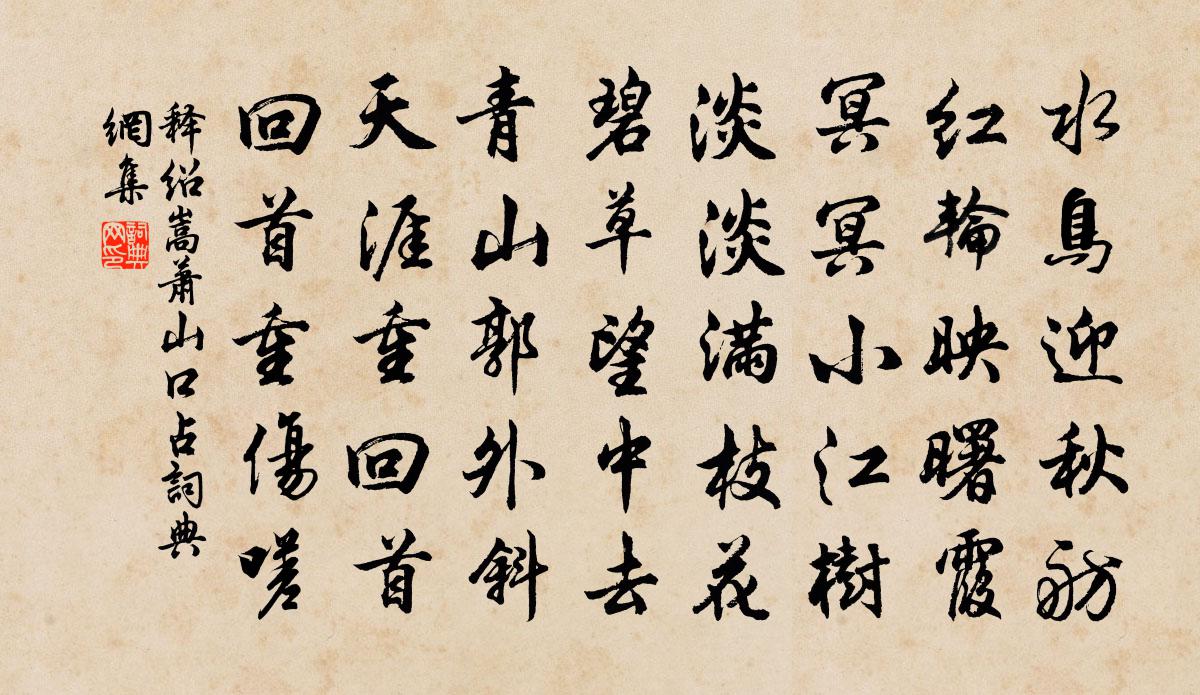 水鳥迎秋舫
红輪映曙霞
冥冥小江樹
淡淡满枝花
碧草望中去
青山郭外斜
天涯重回首
回首重傷嗟
释绍嵩萧山口占詞典
網集
詞典
网印